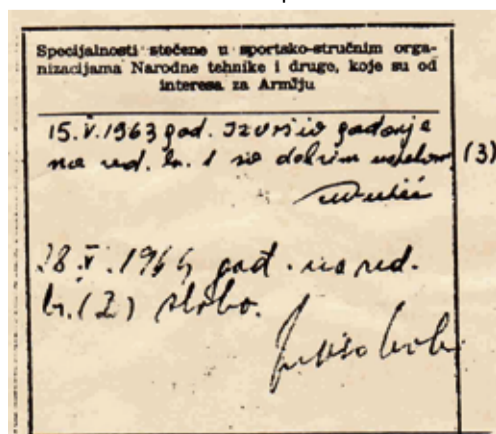 Specijalnosti stečene u sportsko-stručnim orga-
nizacijama Narodne tehnike i drugo, koje su od
interesa za Armiju
15.V.1963 god. Izvršio gađanje
na red. br. 1 sa dobrim uspehom (3)
28.V.1964 gađ. na red.
br. (2) slabo.